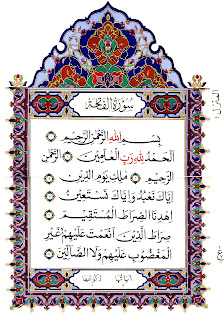 سُورَةُ الْفَاتِحَة
بِسْمِ اللهِ الرَّحْمٰنِ الرَّحِيمِ
الْحَمْدُ لِلّٰهِ رَبِّ الْعَالَمِينَ الرَّحْمٰنِ
الرَّحِيمِ مٰلِكِ يَوْمِ الدِّينِ
إِيَّاكَ نَعْبُدُ وَإِيَّاكَ نَسْتَعِينُ
اِهْدِنَا الصِّرَاطَ الْمُسْتَقِيمَ
صِرَاطَ الَّذِينَ أَنْعَمْتَ عَلَيْهِمْ غَيْرِ
الْمَغْضُوبِ عَلَيْهِمْ وَلَا الضَّالِّينَ